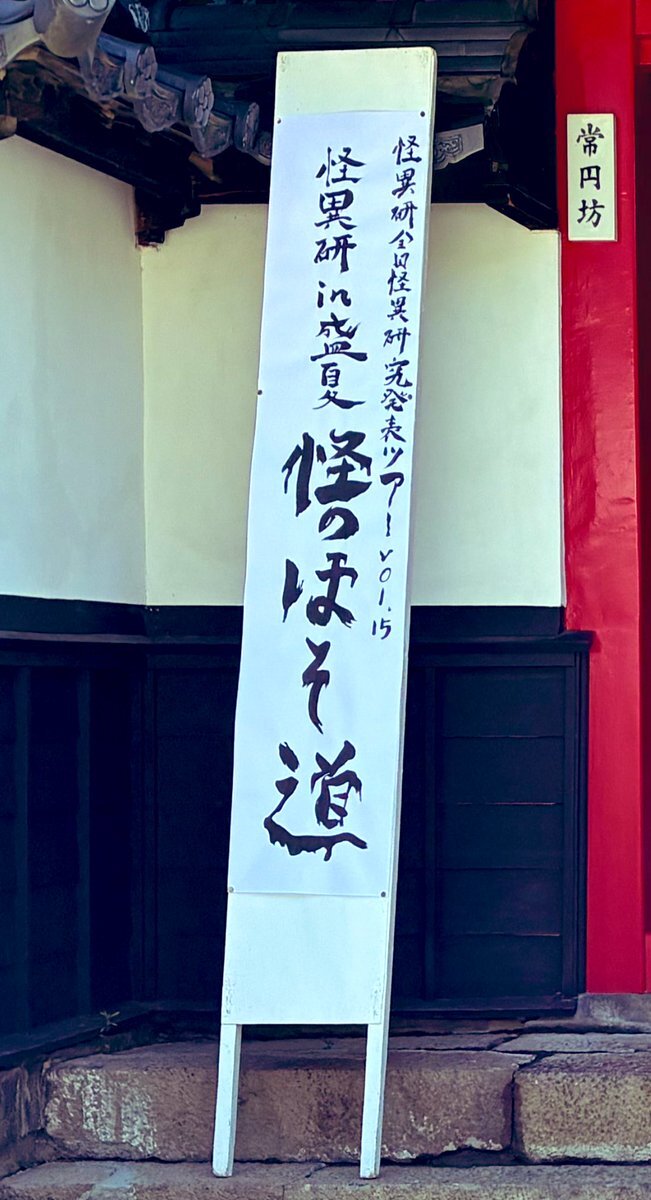 常円坊
怪異研全日怪異研究発表ツアーvol.15
怪異研in盛夏
怪のほそ道